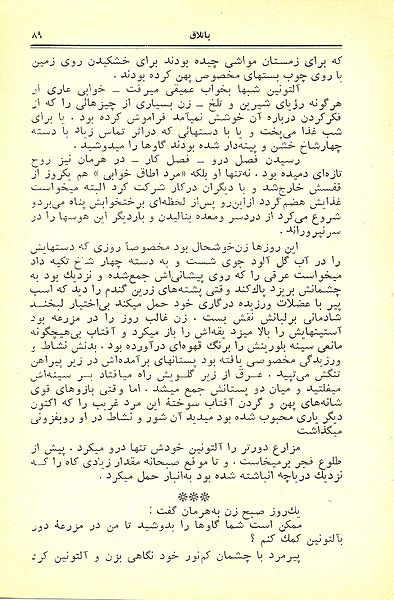 باتلاق
۸۹
که برای زمستان مواشی چیده بودند برای خشکیدن روی زمین
یا روی چوب بستهای مخصوص پهن کرده بودند .
آلتونین شبها بخواب عمیقی میرفت ــ خوابی عاری از
هرگونه رؤیای شیرین و تلخ ــ زن بسیاری از چیزهائی را که از
فکرکردن درباره آن خوشش نمیآمد فراموش کرده بود . یا برای
شب غذا می‌پخت و یا با دستهائی که دراثر تماس زیاد با دسته
چهارشاخ خشن و پینه‌دار شده بودند گاوها را میدوشید .
رسیدن فصل درو ــ فصل کار ــ در هرمان نیز روح
تازه‌ای دمیده بود . نه‌تنها او بلکه «مرد اطاق خوابی » هم یکروز از
قفسش خارج‌شد و با دیگران درکار شرکت کرد البته میخواست
غذایش هضم‌گردد ازاین‌رو پس‌از لحظه‌ای برختخوابش پناه می‌بردو
شروع می‌کرد از دردسر ومعده بنالیدن و باردیگر این هوسها را در
سرنپروراند .
این روزها زن‌خوشحال بود مخصوصاً روزی که دستهایش
را در آب گل آلود جوی شست و به دسته چهار شاخ تکیه داد
میخواست عرقی را که روی پیشانی‌اش جمع‌شده و نزدیك بود به
چشمانش بریزد پاك‌کند وقتی پشته‌های زرین گندم را دید که اسب
پیر با عضلات ورزیده درگاری خود حمل میکند بی‌اختیار لبخند
شادمانی برلبانش نقش بست . زن غالب روز را در مزرعه بود
آستینهایش را بالا میزد یقه‌اش را باز میکرد و آفتاب بی‌هیچگونه
مانعی سینه بلورینش را برنگ قهوه‌ای درآورده بود . بدنش نشاط و
ورزیدگی مخصوصی یافته بود پستانهای برآمده‌اش در زیر پیراهن
تنگش می‌تپید . عــرق از زیر گلــویش راه میافتاد بــر سینه‌اش
میغلتید و میان دو پستانش جمع میشد . اما وقتی بازوهای قوی
شانه‌های پهن و گردن آفتاب سوختهٔ این مرد غریب را که اکنون
دیگر یاری محبوب شده بود میدید آن شور و نشاط در او روبفزونی
میگذاشت
مزارع دورتر را آلتونین خودش تنها درو میکرد . پیش از
طلوع فجر برمیخاست . و تا موقع صبحانه مقدار زیادی کاه را کــه
نزدیك دریاچه انباشته شده بود به‌انبار حمل میکرد .
***
یك‌روز صبح زن به‌هرمان گفت :
ممکن است شما گاوها را بدوشید تا من در مزرعهٔ دور
بآلتونین کمك کنم ؟
پیرمرد با چشمان کم‌نور خود نگاهی بزن و آلتونین کرد